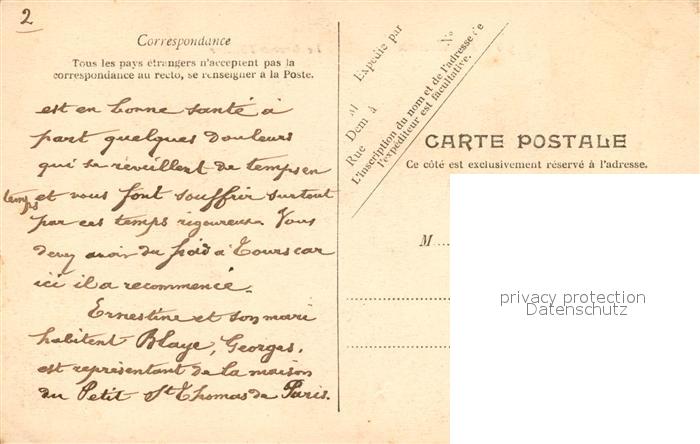 2
Correspondance
Tous les pays étrangers n'acceptent pas la
correspondance au recto, se renseigner à la Poste.
est en bonne santé à
part quelques douleurs
qui se réveillent de temps en
temps et vous font souffrir surtout
par ces temps rigoureux. Vous
devez avoir du froid à Tours car
ici il a recommencé.
Ernestine et son mari
habitent Blaye, Georges,
est représentant de la maison
du Petit St Thomas de Paris.
Expédié par
M
Dem à
Rue
No
L'inscription du nom et de l'adresse de
l'expéditeur est facultative.
CARTE POSTALE
Ce côté est exclusivement réservé à l'adresse.
M
privacy protection
Datenschutz